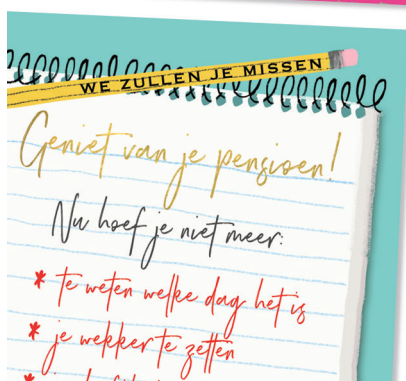 WE ZULLEN JE MISSEN
Geniet van je pensioen!
Nu hoef je niet meer:
* te weten welke dag het is
* je wekker te zetten
*